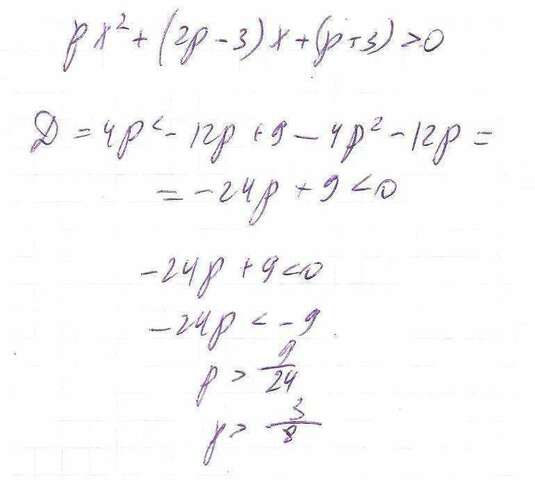 px² + (2p - 3)x + (p+3) > 0
D = 4p² - 12p + 9 - 4p² - 12p =
= -24p + 9 < 0
-24p + 9 < 0
-24p < -9
p > 9/24
p > 3/8